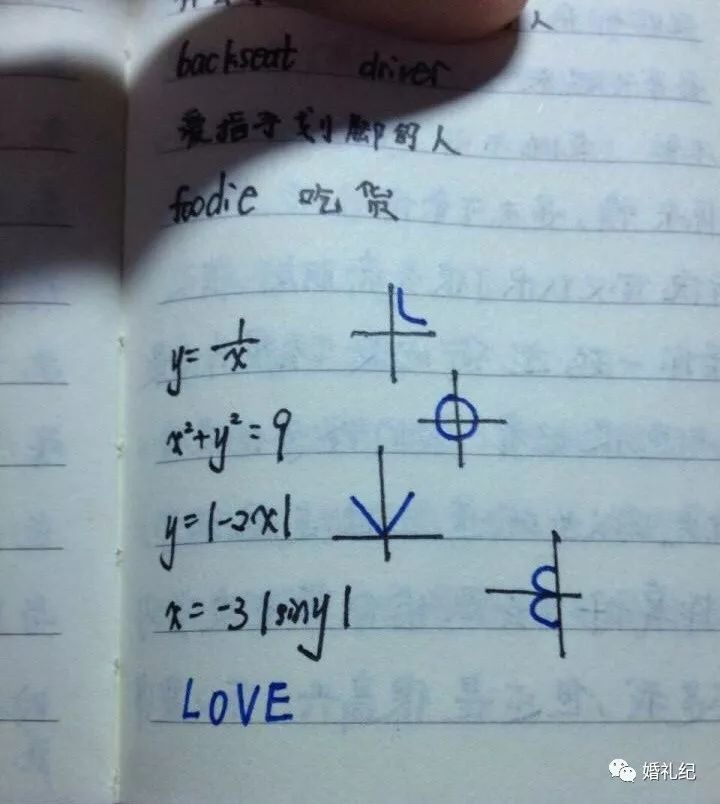 人
backseat driver
爱指手划脚的人
foodie 吃货
y=1/x
x²+y²=9
y=|-2x|
x=-3|siny|
LOVE
婚礼纪